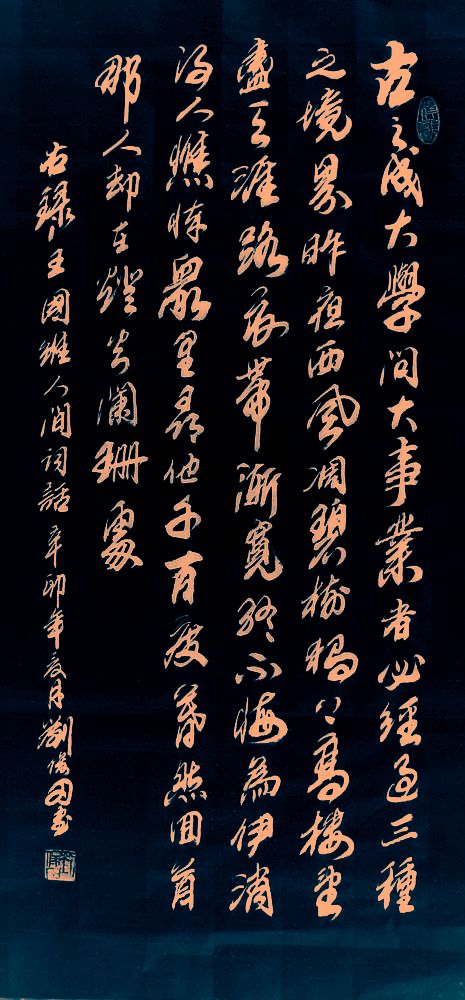 古之成大學問大事業者必經過三種
之境界昨夜西風凋碧樹獨上高樓望
盡天涯路衣帶漸寬終不悔為伊消
得人憔悴眾里尋他千百度驀然回首
那人却在燈火瀾珊處
右録王國維人間詞話 辛卯年夏月劉俊田書